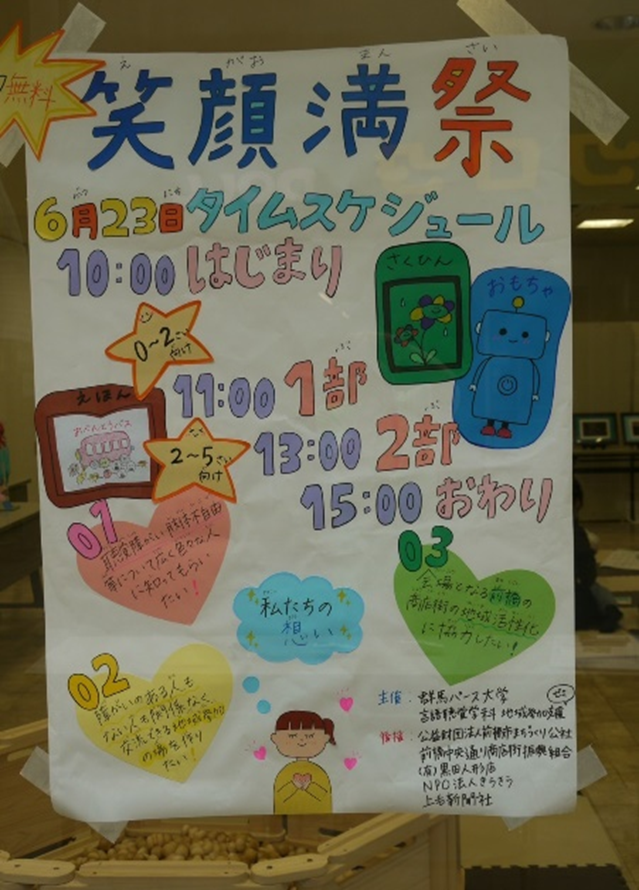 無料
え がお まん さい
笑顔満祭
6月23日タイムスケジュール
10:00 はじまり
さくひん
おもちゃ
0~2さい
向け
11:00 1部
えほん
おべんとうバス
2~5さい
向け
13:00 2部
15:00 おわり
01
聴覚障がい・肢体不自由
等について広く色々な人
に知ってもらい
たい!
03
会場となる前橋の
商店街の地域活性化
に協力したい!
私たちの
想い
02
障がいのある人も
ない人も関係なく、
交流できる地域参加
の場を作り
たい!
主催:群馬パース大学
言語聴覚学科 地域参加
ゼミ
公益財団法人前橋市まちづくり公社
前橋中央通り商店街振興組合
(有)黒田人形店
NPO法人きらきら
上毛新聞社